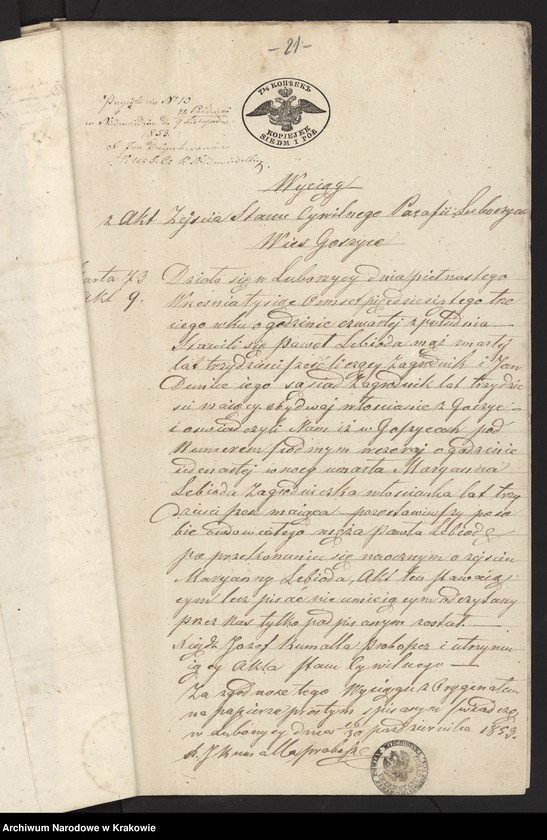 - 21 -
7½ КОПѢЕКЪ
KOPIEJEK
SIEDM I PÓŁ
No 13
w Niedzwiedziu d. 9 Listopada
1853.
X. Jan
Wyciąg
z Akt Zejścia Stanu Cywilnego Parafii Luborzyca
Wieś Goszyce
Karta 73
akt 9.
Działo się w Luborzycy dnia piętnastego
Września tysiąc Ośmset pięćdziesiątego trze
ciego roku o godzinie czwartej z południa
Stawili się Paweł Lebioda mąż zmarłej
lat trzydzieści sześć liczący Zagrodnik i Jan
Dunice iego sąsiad Zagrodnik lat trzydzie
ści maiący obydwaj włościanie z Goszyc -
i oświadczyli Nam iż w Goszycach pod
Numerem siódmym wczoraj o godzinie
iedenastej w nocy umarła Maryanna
Lebioda Zagrodniczka włościanka lat trzy
dzieści maiąca pozostawiwszy po so
bie owdowiałego męża Pawła Lebiodę
po przekonaniu się naocznym o zejściu
Maryanny Lebioda, Akt ten stawaią
cym lecz pisać nie umieiącym odczytany
przez nas tylko podpisanym został. -
Xiądz Jozef Kumalla Proboszcz i utrzymu
iący Akta Stanu Cywilnego -
Za zgodność tego Wyciągu z Oryginałem
na papierze prostym spisanym świadczę
w Luborzycy dnia 30 października 1853.
X. J. Kumalla proboszcz
Archiwum Narodowe w Krakowie